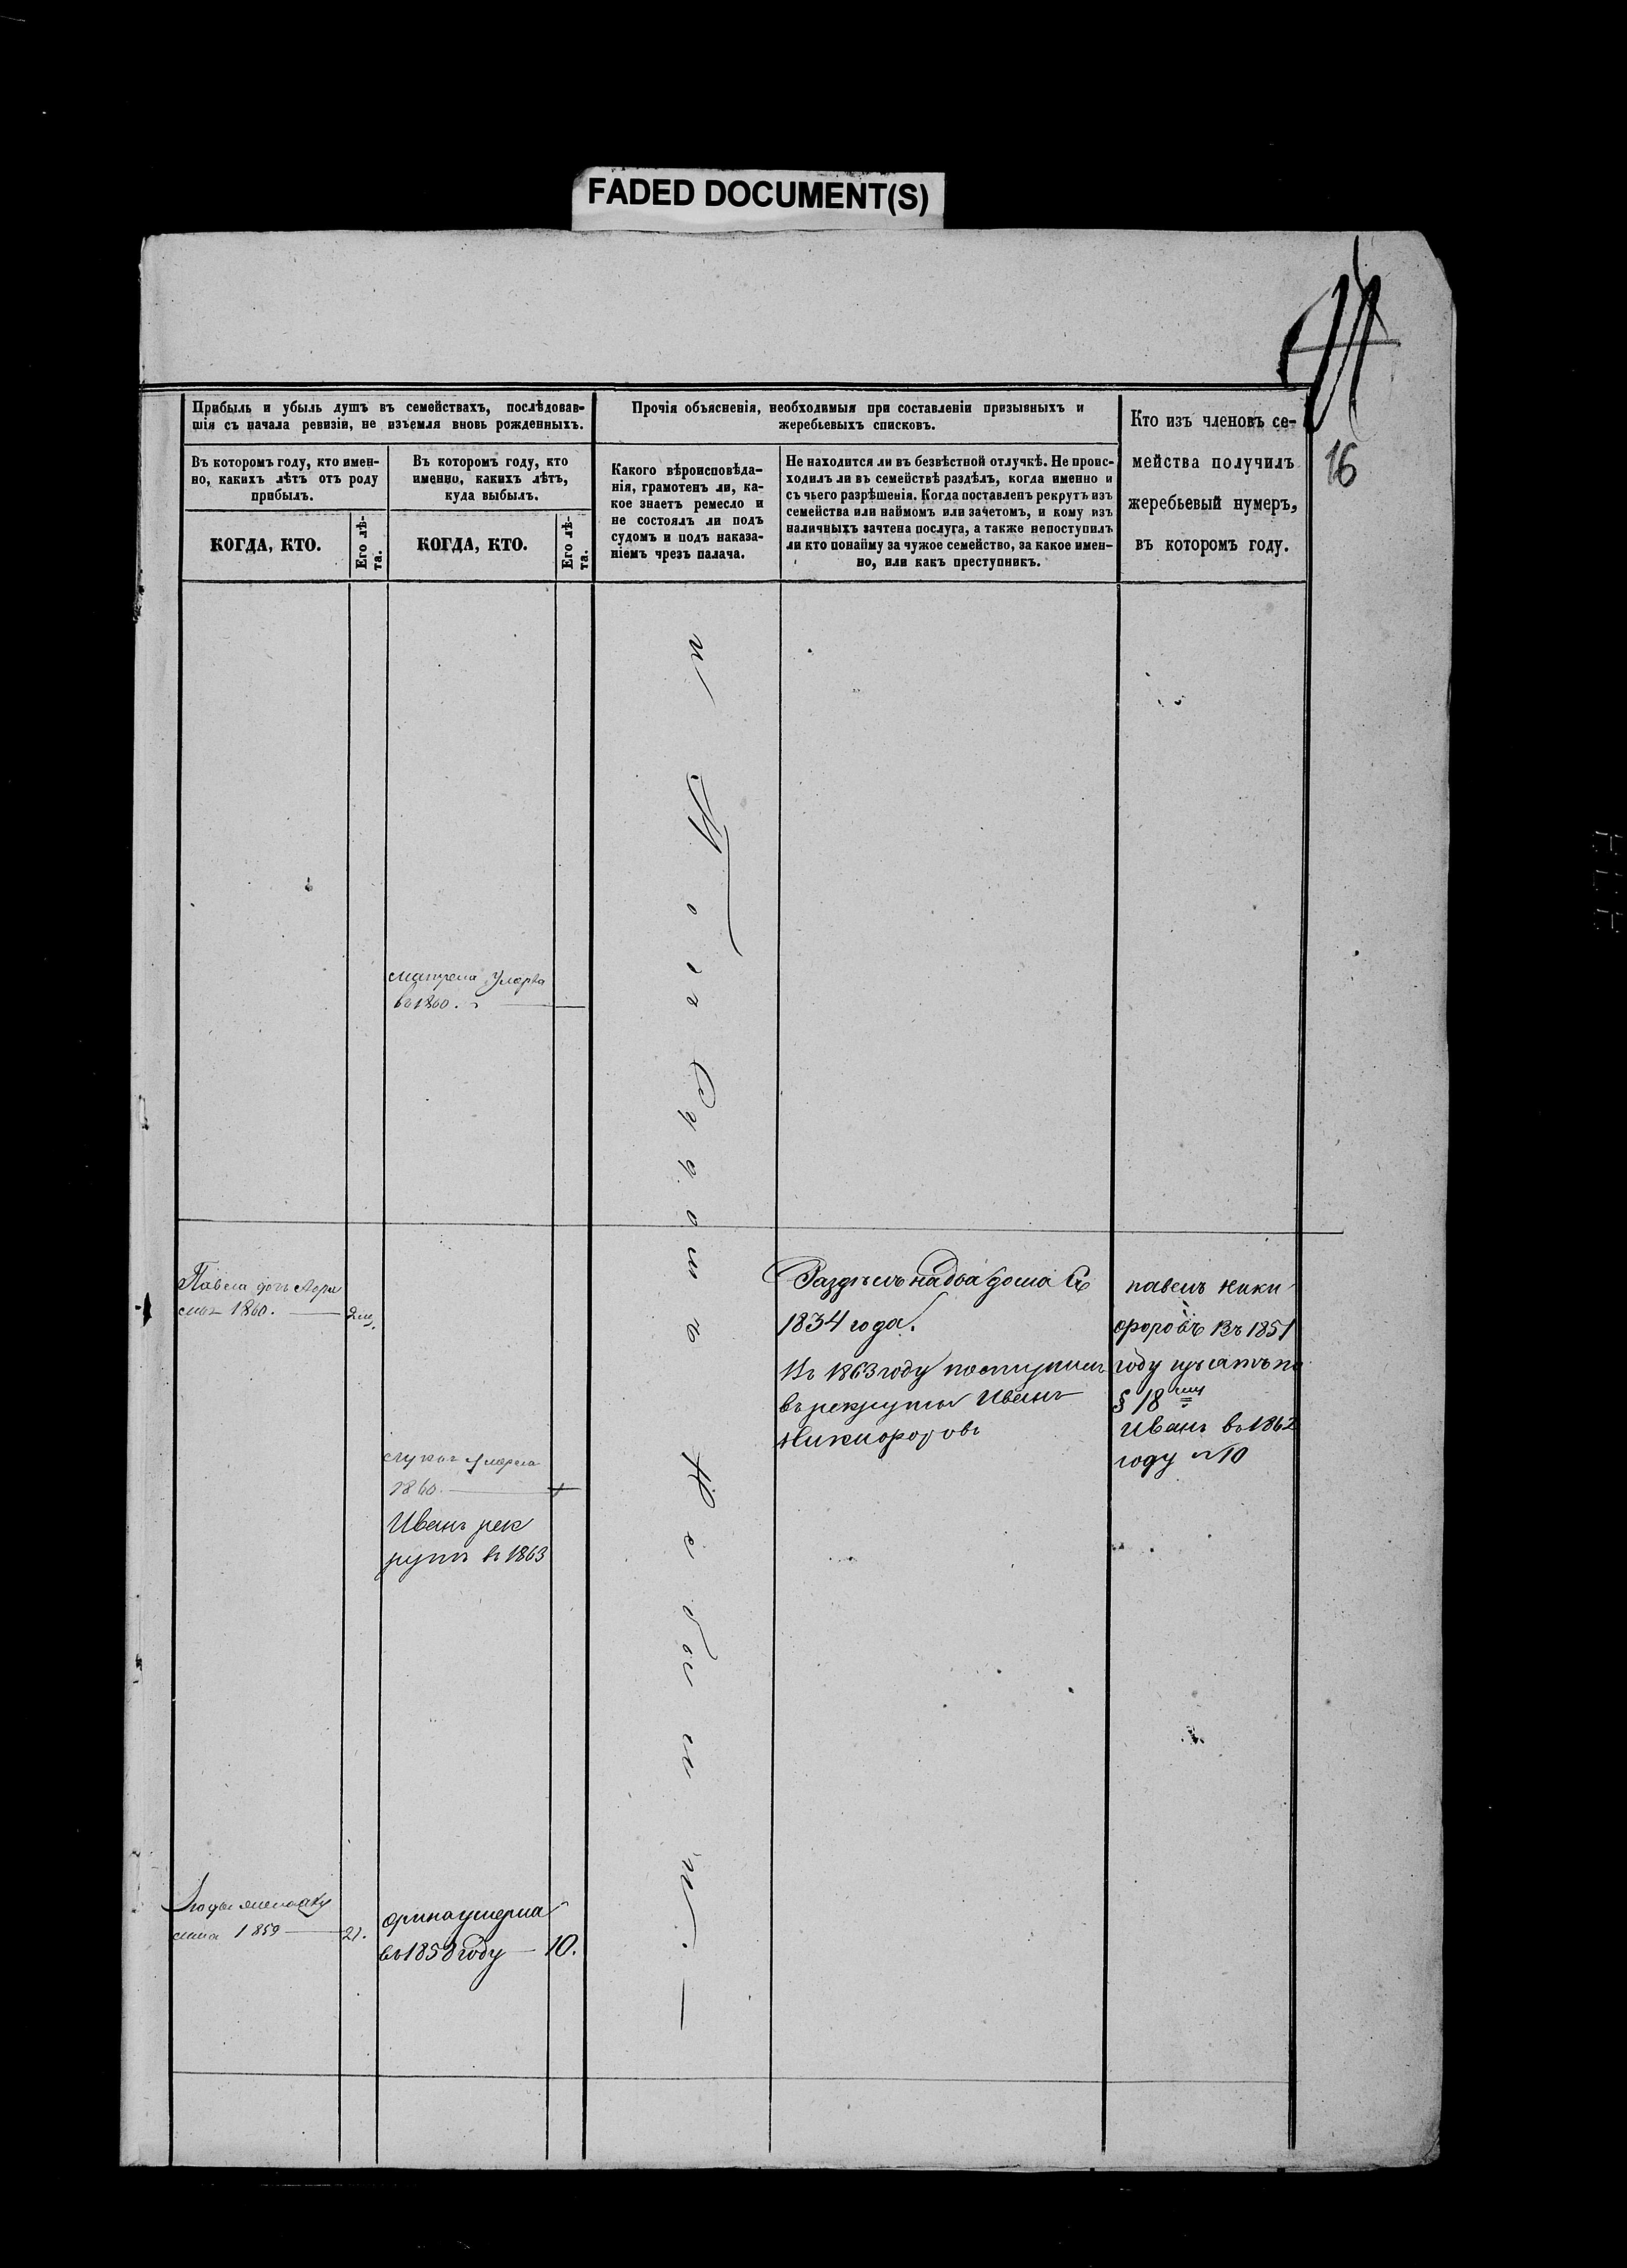 FADED DOCUMENT(S)
16
Прибыль и убыль душъ въ семействахъ, послѣдовав-
шія съ начала ревизіи, не изъемля вновь рожденныхъ.
Въ которомъ году, кто имен-
но, какихъ лѣтъ отъ роду
прибылъ.
КОГДА, КТО.
Его лѣ-
та.
Въ которомъ году, кто
именно, какихъ лѣтъ,
куда выбылъ.
КОГДА, КТО.
Его лѣ-
та.
Прочія объясненія, необходимыя при составленіи призывныхъ и
жеребьевыхъ списковъ.
Какого вѣроисповѣда-
нія, грамотенъ ли, ка-
кое знаетъ ремесло и
не состоялъ ли подъ
судомъ и подъ наказа-
ніемъ чрезъ палача.
Не находится ли въ безвѣстной отлучкѣ. Не проис-
ходилъ ли въ семействѣ раздѣлъ, когда именно и
съ чьего разрѣшенія. Когда поставленъ рекрутъ изъ
семейства или наймомъ или зачетомъ, и кому изъ
наличныхъ зачтена послуга, а также непоступилъ
ли кто понайму за чужое семейство, за какое имен-
но, или какъ преступникъ.
Кто изъ членовъ се-
мейства получилъ
жеребьевый нумеръ,
въ которомъ году.
умерла
въ 1860.
Павла дочь
1860.
Раздѣлъ на два дома съ
1834 года.
Въ 1863 году поступилъ
въ рекруты Иванъ
Никифоровъ
павелъ ники
форовъ Въ 1851
году изъятъ по
§ 18
Иванъ въ 1862
году №10
1860
Иванъ рек
рутъ въ 1863
1859 21.
орина умерла
въ 1858 году 10.